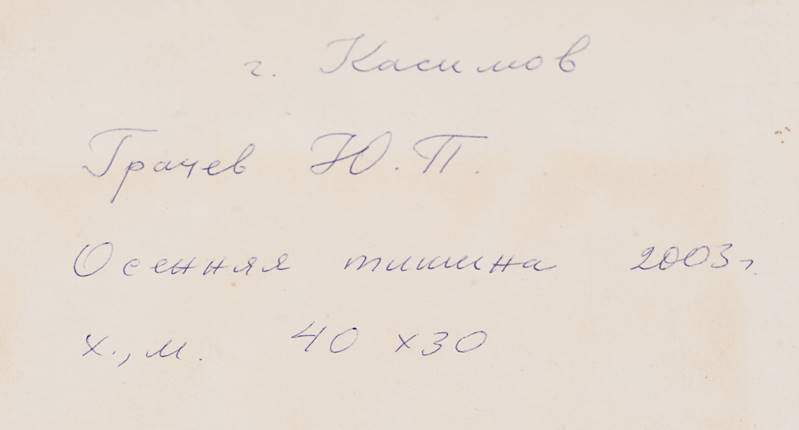 г. Касимов
Грачев Ю.П.
Осенняя тишина 2003г.
х., м. 40 х30